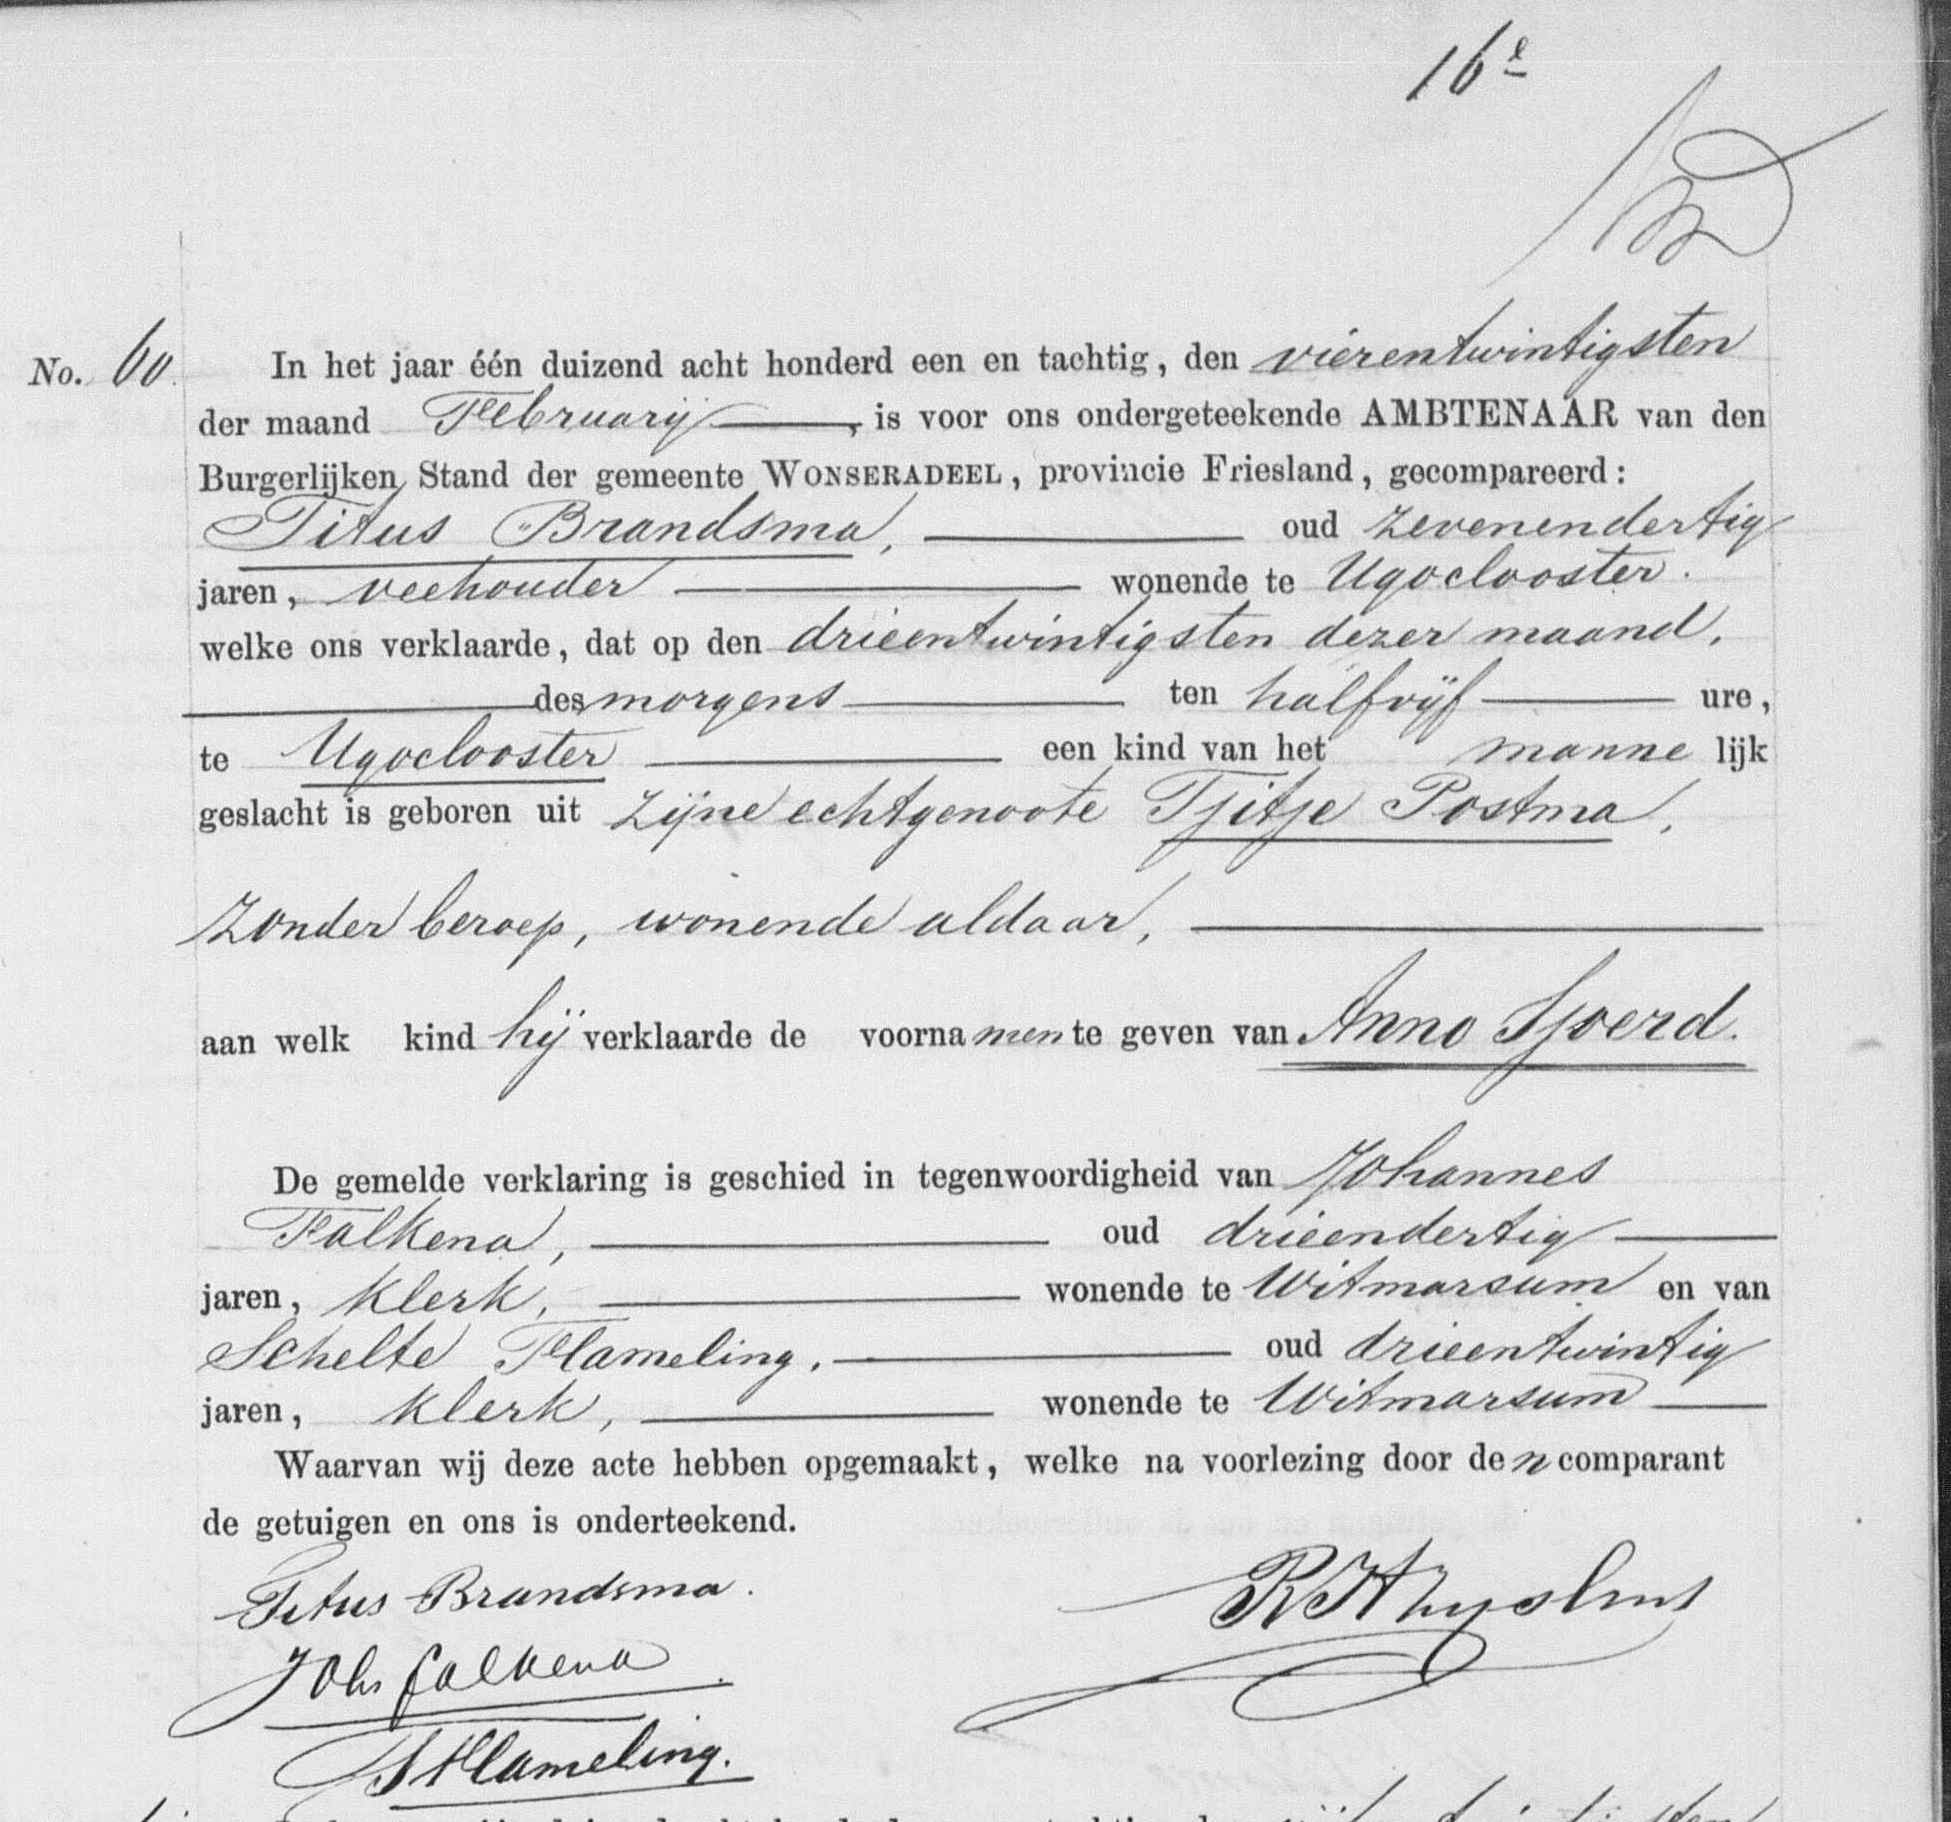 16e
No. 60 In het jaar één duizend acht honderd een en tachtig, den vierentwintigsten
der maand Februarij, is voor ons ondergeteekende AMBTENAAR van den
Burgerlijken Stand der gemeente WONSERADEEL, provincie Friesland, gecompareerd:
Titus Brandsma, oud zevenendertig
jaren, veehouder wonende te Ugoclooster.
welke ons verklaarde, dat op den drieentwintigsten dezer maand,
des morgens ten halfvijf ure,
te Ugoclooster een kind van het mannelijk
geslacht is geboren uit zijne echtgenoote Tjitje Postma,
zonder beroep, wonende aldaar,
aan welk kind hij verklaarde de voornamen te geven van Anno Sjoerd.
De gemelde verklaring is geschied in tegenwoordigheid van Johannes
Falkena, oud drieendertig
jaren, klerk, wonende te Witmarsum en van
Schelte Flameling, oud drieentwintig
jaren, klerk, wonende te Witmarsum
Waarvan wij deze acte hebben opgemaakt, welke na voorlezing door den comparant
de getuigen en ons is onderteekend.
Titus Brandsma.
Johs Falkena
S Flameling.